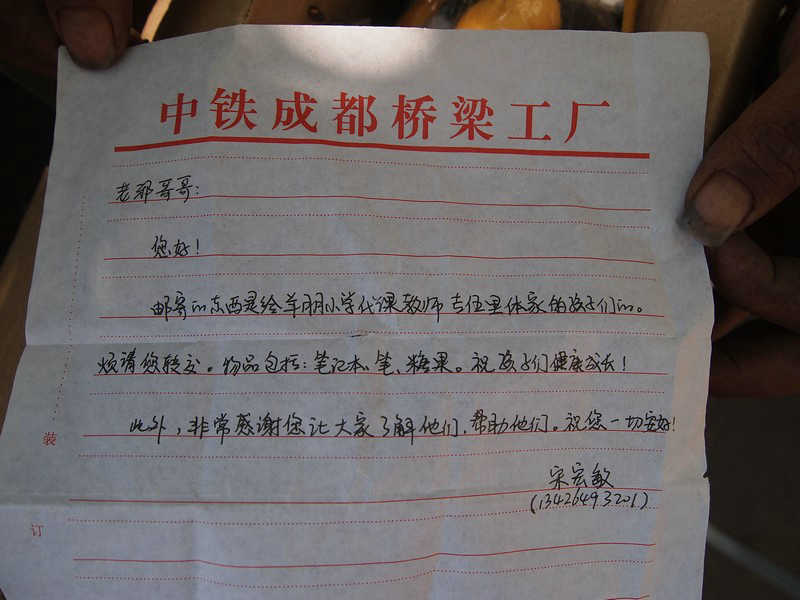 中铁成都桥梁工厂
老郧哥哥:
您好!
邮寄的东西是给羊明小学代课教师吉伍里体家的孩子们的。
烦请您转交。物品包括:笔记本、笔、糖果。祝孩子们健康成长!
此外,非常感谢您让大家了解他们,帮助他们。祝您一切安好!
宋宏敏
(13426493201)
装
订